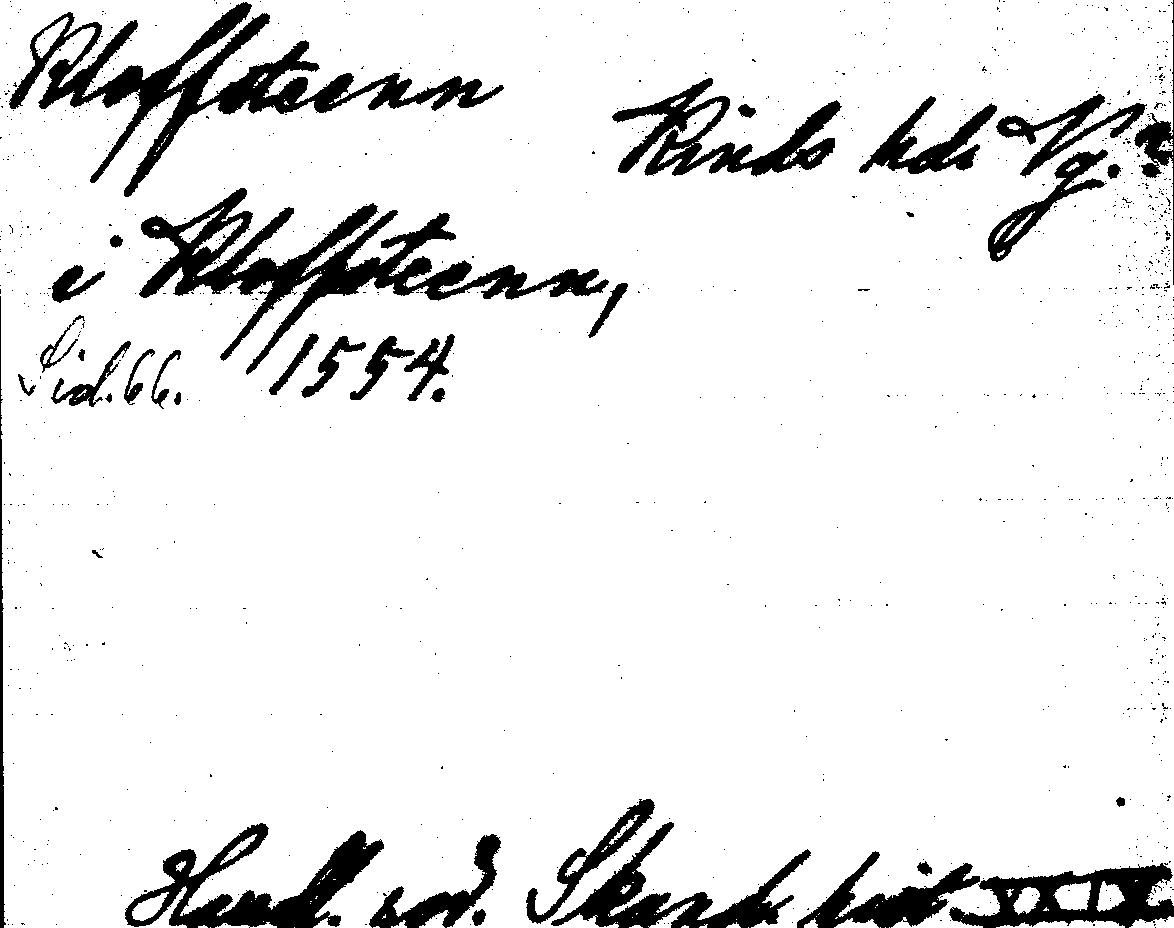 Kloffsteenn
Kinds hd. Vg.?
i Kloffsteenn,
Sid. 66. 1554.
Handl. rör. Skand. hist XXIX